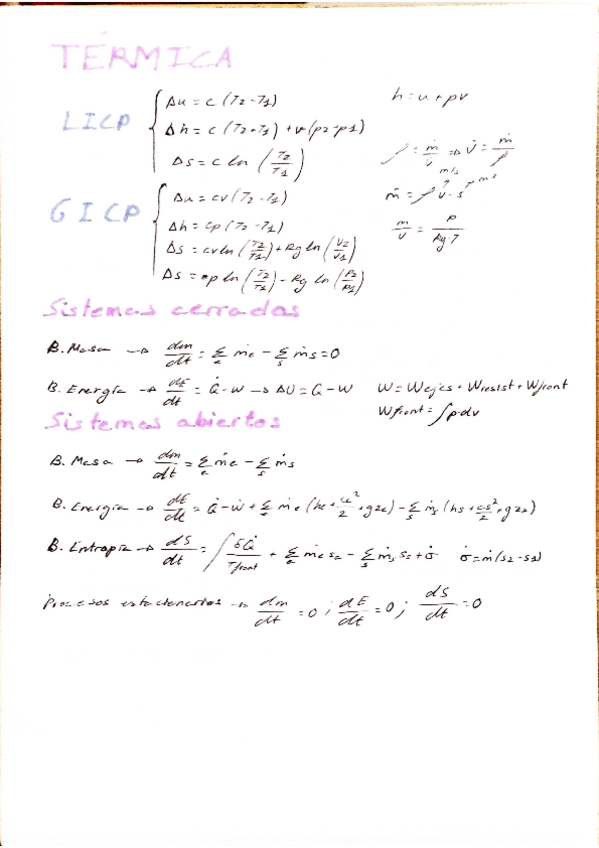 TÉRMICA
LICP
Δu = c (T2 - T1)
Δh = c (T2 + T1) + v (p2 - p1)
Δs = c ln (T2/T1)
h = u + pv
ρ = ṁ/v̇ => v̇ = ṁ/ρ
m/s
m²
ṁ = ρ · v · s
m/v = P/(Rg·T)
GICP
Δu = cv (T2 - T1)
Δh = cp (T2 - T1)
Δs = cv ln (T2/T1) + Rg ln (V2/V1)
Δs = cp ln (T2/T1) - Rg ln (P2/P1)
Sistemas cerrados
B. Masa → dm/dt = Σe ṁe - Σs ṁs = 0
B. Energía → dE/dt = Q̇ - W → ΔU = Q - W
W = Wejes + Wresist + Wfront
Wfront = ∫p·dv
Sistemas abiertos
B. Masa → dm/dt = Σe ṁe - Σs ṁs
B. Energía → dE/dt = Q̇ - Ẇ + Σe ṁe (he + ce²/2 + gze) - Σs ṁs (hs + cs²/2 + gzs)
B. Entropía → dS/dt = ∫ δQ̇/Tfront + Σe ṁe se - Σs ṁs ss + σ̇
σ̇ = ṁ (s2 - s1)
Procesos estacionarios → dm/dt = 0 ; dE/dt = 0 ; dS/dt = 0